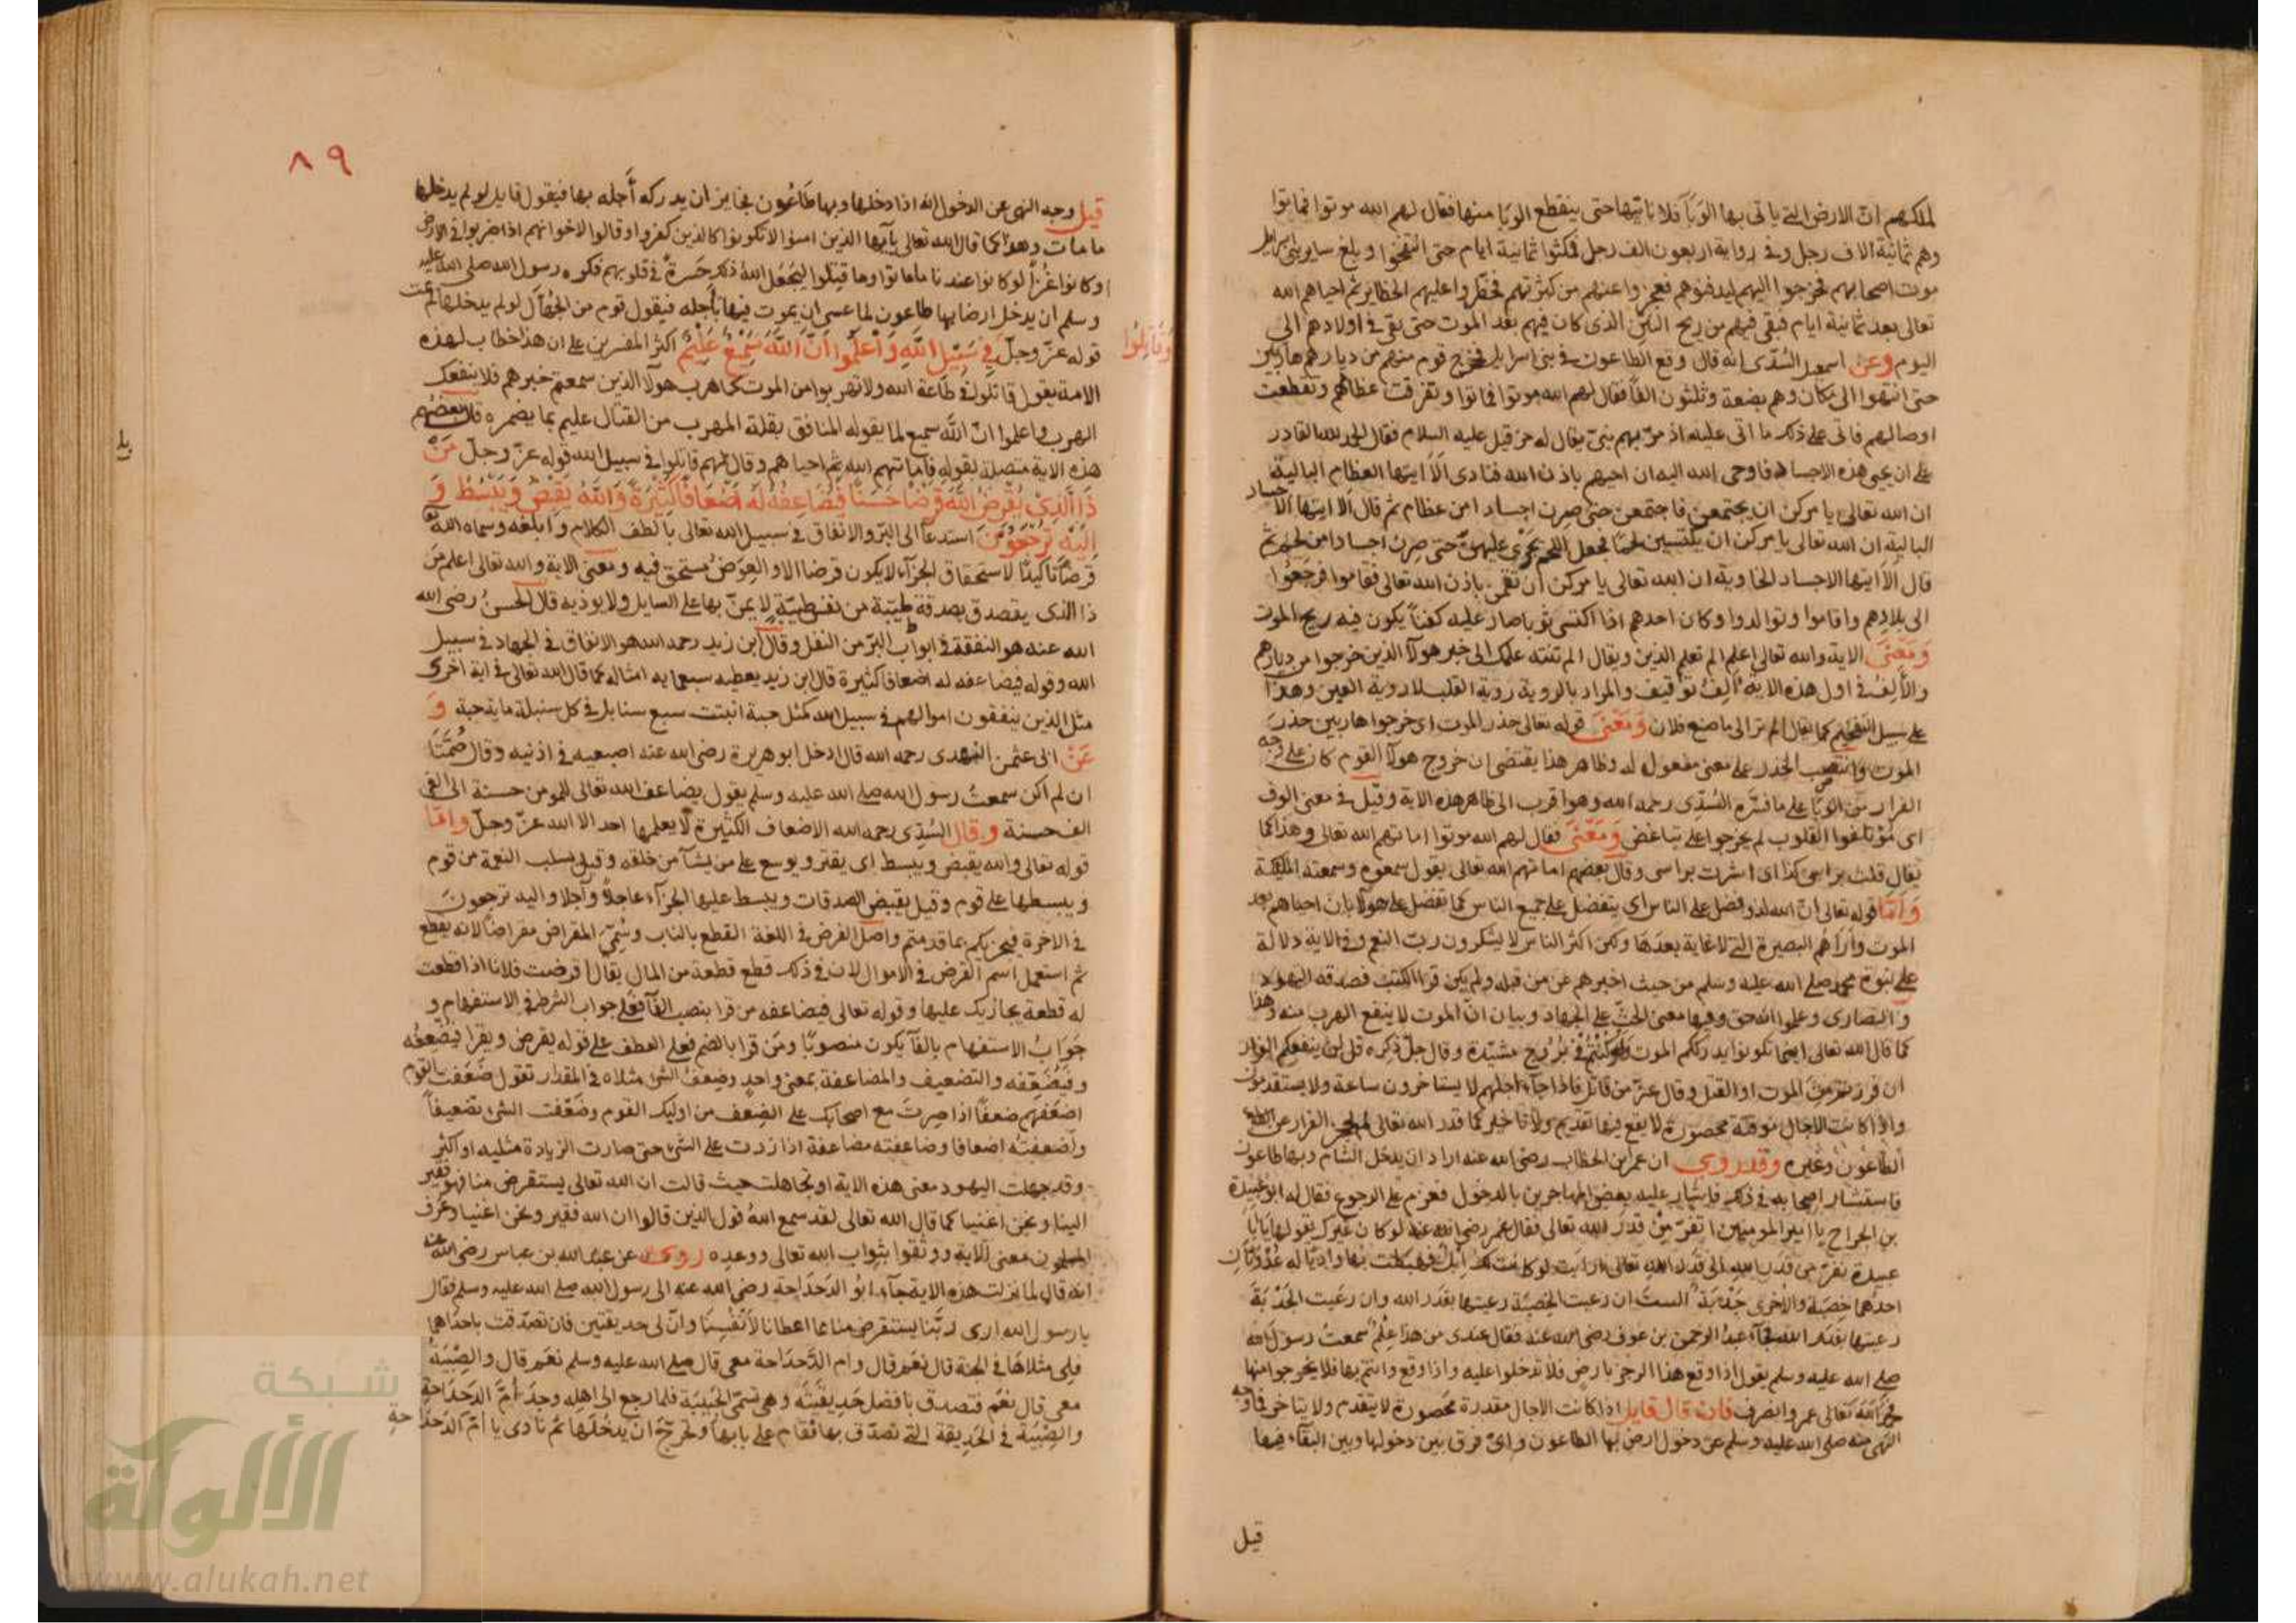 لملكهم انّ الارض التي ياتى بها الوَبَآ فلا ناتيها حتى ينقطع الوَبا منها فقال لهم الله موتوا فماتوا
وهم ثمانية الاف رجل وفى رواية اربعون الف رجل فمكثوا ثمانية ايام حتى انتفخوا وبلغ ساير بنى اسرايل
موت اصحابهم فخرجوا اليهم ليدفنوهم فعجزوا عنهم من كثرتهم فحظّروا عليهم الحظاير ثم احياهم الله
تعالى بعد ثمانية ايام فبقى فيهم من ريح النتن الذى كان فيهم بعد الموت حتى بقى فى اولادهم الى
اليوم وعن اسمعيل السُدّى انه قال وقع الطاعون فى بنى اسرايل فخرج قوم منهم من ديارهم هاربين
حتى انتهوا الى مكان وهم بضعة وثلثون الفًا فقال لهم الله موتوا فماتوا وتفرقت عظامهم وتقطعت
اوصالهم فاتى على ذلك ما اتى عليه اذ مرّ بهم نبىّ يقال له حزقيل عليه السلام فقال الحمد لله القادر
على ان يحيى هذه الاجساد فاوحى الله اليه ان احيهم باذن الله فنادى اَلَا ايتها العظام البالية
ان الله تعالى يامركن ان يجتمعن فاجتمعن حتى صرن اجسادا من عظام ثم قال اَلا ايتها الاجساد
البالية ان الله تعالى يامركن ان يكتسين لحمًا فجعل اللحم يجرى عليهن حتى صِرن اجسادا من لحم ثم
قال اَلَا ايتها الاجساد الخاوية ان الله تعالى يامركن ان تقمن باذن الله تعالى فقاموا فرجَعُوا
الى بلادهم واقاموا وتوالدوا وكان احدهم اذا اكتسى ثوبا صار عليه كفناً يكون فيه ريح الموت
وَمَعنَى الاية والله تعالى اعلم الم تعلم الذين ويقال الم تنته علمك الى خبر هولآ الذين خرجوا من ديارهم
والأَلِفُ فى اول هذه الاية اَلِفُ توقيف والمراد بالروية روية القلب لا روية العين وهذا
على سبيل التفخيم كما يقال الم تر الى ما صنع فلان وَمَعنَى قوله تعالى حذر الموت اى خرجوا هاربين حذرَ
الموت وانتصب الحذر على معنى مفعول له وظاهر هذا يقتضى ان خروج هولآ القوم كان على وجه
الفرار من الوَبَا على ما فسّره السُدّى رحمه الله وهو اقرب الى ظاهر هذه الاية وقيل فى معنى الوف
اى مُؤتلفوا القلوب لم يخرجوا على تباغض وَمَعْنَى فقال لهم الله موتوا اماتهم الله تعالى وهذا كما
يقال قلت براسى كذا اى اشرت براسى وقال بعضهم اماتهم الله تعالى بقول سمعوه وسمعته الملئكة
وَامّا قوله تعالى انّ الله لذو فضل على الناس اى يتفضل على جميع الناس كما تفضل على هولآ بان احياهم بعد
الموت وأراهُم البصيرة التى لا غاية بعدها ولكن اكثر الناس لا يشكرون ربّ النعم وفى الاية دلالة
على نبوة محمد صلى الله عليه وسلم من حيث اخبرهم عن من قبله ولم يكن قرا الكتب فصدقه اليهود
والنصارى وعلموا انه حق وفيها معنى الحثّ على الجهاد وبيان انّ الموت لا ينفع الهرب منه وهذا
كما قال الله تعالى اينما تكونوا يدرككم الموت ولو كنتم فى بُرُوج مشيّدة وقال جلّ ذكره قل لن ينفعكم الفرار
ان فررتم من الموت او القتل وقال عزّ من قائل فاذا جآء اجلهم لا يستاخرون ساعة ولا يستقدمون
واذا كانت الاجال موقتة محصورة لا يقع فيها تقديم ولا تاخير كما قدر الله تعالى الفرار عن
الطاعُون وغيره وقد روى ان عمر بن الخطاب رضى الله عنه اراد ان يدخل الشام وبها طاعون
فاستشار اصحابه فى ذلك فاشار عليه بعض المهاجرين بالدخول فعزم على الرجوع فقال له ابو عبيدة
بن الجراح يا امير المومنين اتفرّ مِنْ قدَر الله تعالى فقال عمر رضى الله عنه لوكان غيرك يقولها يا ابا
عبيدة نفرّ من قدر الله الى قدر الله تعالى ارايت لو كانت لك اِبل فهبطت بها واديًا له عُدْوَتَان
احدٰهما خِصبَة والاخرى جَدْبَة الستَ ان رعيت الخصبَة رعيتها بقدَر الله وان رعَيت الجَدْبَةَ
رعيتها بقدر الله فجآء عبد الرحمن بن عوف رضى الله عنه فقال عندى من هذا عِلْم سَمعتُ رسولَ الله
صلى الله عليه وسلم يقول اذا وقع هذا الرجز بارض فلا تدخلوا عليه واذا وقع وانتم بها فلا تخرجوا منها
فحمد الله تعالى عمر وانصرف فان قال قايل اذا كانت الاجال مقدرة محصورة لا يتقدم ولا يتاخر فما وجه
النهى منه صلى الله عليه وسلم عن دخول ارض بها الطاعون واىّ فرق بين دخولها وبين البقآء فيها
قيل
٨٩
قيل وجه النهى عن الدخول انه اذا دخلها وبها طَاعُون فجايز ان يدركه أَجله بها فيقول قايل لو لم يدخلها
ما مات وهو كما قال الله تعالى يايّها الذين امنوا لا تكونوا كالذين كفروا وقالوا لاخوانهم اذا ضربوا فى الارض
اوكانوا غُزًّا لو كانوا عندنا ما ماتوا وما قتلوا ليَجْعَل اللهُ ذلك حَسرةً فى قلوبهم فكره رسول الله صلى الله عليه
وسلم ان يدخل ارضا بها طاعون لما عسى ان يموت فيها بأجله فيقول قوم من الجُهّال لو لم يدخلها لم يمت
وَقَاتِلُوا
قوله عزّ وجلّ فِى سَبِيلِ اللّٰهِ وَاعْلَمُوا اَنَّ اللّٰهَ سَمِيعٌ عَلِيْمٌ اكثر المفسرين على ان هذا خطاب لهذه
الامة يقول قاتلوا فى طَاعة الله ولا تهربوا من الموت كما هرب هولآ الذين سمعتم خبرهم فلا ينفعكم
الهرب واعلموا انّ اللّٰه سميع لما يقوله المنافق بقلة المهرب من القتال عليم بما يضمره قال بعضهم
هذه الاية متصلة بقوله فاماتهم الله ثم احياهم وقال لهم قاتلوا فى سبيل الله قوله عزّ وجلّ مَنْ
ذَا الَّذِى يُقْرِضُ اللّٰهَ قَرْضًا حَسَنًا فَيُضَاعِفُهُ لَهُ اَضْعَافًا كَثِيْرَةً وَاللّٰهُ يَقْبِضُ وَيَبْسُطُ وَ
اِلَيْهِ تُرْجَعُوْنَ استدعآ الى البرّ والانفاق فى سبيل الله تعالى بالطف الكلام وابلغه وسماه الله تعا
قرضًا تاكيدًا لاستحقاق الجزآء لا يكون قرضا الا والعِوَضُ مستحق فيه ومعنى الاية والله تعالى اعلم مَن
ذا الذى يتصدق بصدقة طيّبة من نفس طيّبَةٍ لا يمنّ بها على السايل ولا يوذيه قال الحسنُ رضى الله
الله عنه هو النفقة فى ابوابْ البرّ من النفل وقال ابن زيد رحمه الله هو الانفاق فى الجهاد فى سبيل
الله وقوله فيضاعفه له اضعافا كثيرة قال ابن زيد يعطيه سبعماية امثاله كما قال الله تعالى فى اية اخرى
مثل الذين ينفقون اموالهم فى سبيل الله كمثل حبة انبتت سبع سنابل فى كل سنبلة ماية حبة وَ
عَنْ ابى عثمن النهدى رحمه الله قال ادخل ابو هريرة رضى الله عنه اصبعيه فى اذنيه وقال صُمَّتَا
ان لم اكن سمعتُ رسول الله صلى الله عليه وسلم يقول يضاعف الله تعالى للمومن حسنة الى الفى
الف حسنة وقال السُدِّى رحمه الله الاضعاف الكثيرة لا يعلمها احد الا الله عزّ وجلّ وامّا
قوله تعالى والله يقبض ويبسط اى يقتر ويوسع على من يشآ من خلقه وقيل يسلب النعمة من قوم
ويبسطها على قوم وقيل يقبض الصدقات ويبسط عليها الجزآء عاجلاً وآجلا واليه ترجعون
فى الاخرة فيجزيكم بما قدمتم واصل القرض فى اللغة القطع بالناب وسُمّى المقراض مقراضًا لانه يقطع
ثم استعمل اسم القرض فى الاموال لان فى ذلك قطع قطعة من المال يقال اقرضت فلانا اذا قطعت
له قطعة يجازيك عليها وقوله تعالى فيضاعفه من قرا بنصب الفآ فعلى جواب الشرط فى الاستفهام و
جَوَابُ الاستفهام بالفآ يكون منصوبًا ومَن قرا بالضم فعلى العطف على قوله يقرض ويقرا فيُضْعِفُه
وفيُضَعِّفه والتضعيف والمضاعفة بمعنى واحد وضِعفُ الشى مثلاه فى المقدار تقول ضَعَفت القوم
اضعَفهم ضعفًا اذا صِرتَ مع اصحابك على الضِعْف من اوليك القوم وضَعّفت الشى تضعيفاً
وأضعفته اضعافا وضاعفته مضاعفة اذا زدت على الشى حتى صارت الزيادة مثليه او اكثر
وقد جهلت اليهود معنى هذه الاية او تجاهلت حيث قالت ان الله تعالى يستقرض منا فهو فقير
الينا ونحن اغنيا كما قال الله تعالى لقد سمع اللهُ قول الذين قالوا ان الله فقير ونحن اغنيا وعرف
المسلمون معنى الاية ووثقوا بثواب الله تعالى ووعده روى عن عبد الله بن عباس رضى الله عنه
انه قال لما نزلت هذه الاية جآء ابُو الدَحدَاحة رضى الله عنه الى رسول الله صلى الله عليه وسلم فقال
يا رسول الله ارى رَبَّنا يستقرض منا مما اعطانا لأَنْفُسِنا وانّ لى حديقتين فان تصدّقت باحدٰهما
فلى مثلاها فى الجنة قال نعَم قال وام الدَّحدَاحة معى قال صلى الله عليه وسلم نعَم قال والصِّبْيَةُ
معى قال نعَم فتصدق بافضل حَديقتَيه وهى تسمّى الحُبَيبَة فلما رجع الى اهله وجدَ اُمَّ الدَحدَاحةِ
والصِّبْيَة فى الحَدِيقة التى تصدّق بها فقام على بابها وتحرّجَ ان يدخُلَها ثم نادى يا اُمّ الدَحدَاحةِ
شبكة
الألوكة
www.alukah.net